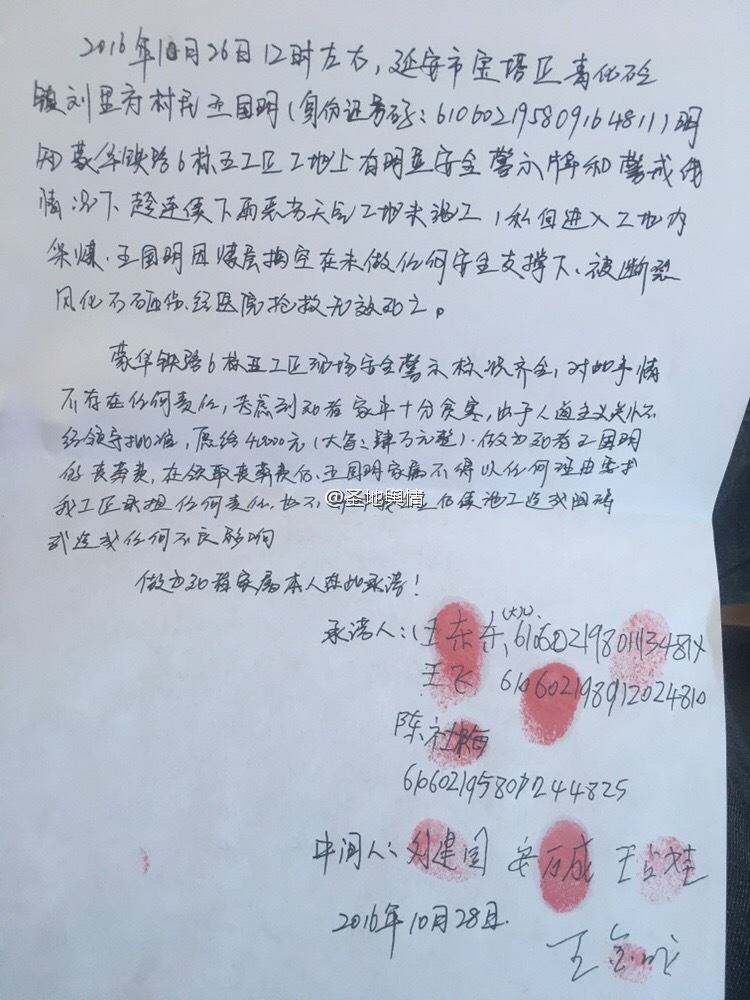 2016年10月26日12时左右,延安市宝塔区青化砭
镇刘里村村民王国明(身份证号码:610602195809164811)明
知蒙华铁路6标五工区工地上有明显安全警示牌和警戒线
情况下,趁连续下雨恶劣天气工地未施工,私自进入工地内
采煤.王国明因煤层掏空在未做任何安全支撑下、被断裂
风化石石砸伤.经医院抢救无效死亡。
蒙华铁路6标五工区现场安全警示标识齐全,对此事情
不存在任何责任,考虑到死者家中十分贫寒,出于人道主义关怀
经领导批准,愿给40000元(大写:肆万元整).做为死者王国明
的丧葬费,在领取丧葬费后、王国明家属不得以任何理由要求
我工区承担任何责任.也不 后续施工造成阻碍
或造成任何不良影响
做为死者家属本人在此承诺!
@圣地舆情
承诺人:(王东东,(大儿) 61060219801134814
王飞 610602198912024810
陈社梅
610602195807244825
中间人:刘建国 安万成 王占雄
2016年10月28日.
王